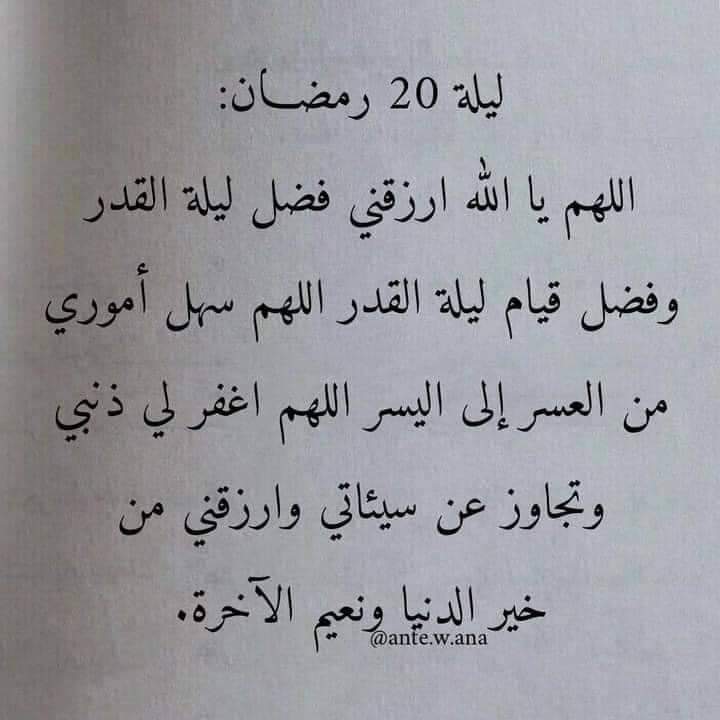 ليلة 20 رمضـــان:
اللهم يا الله ارزقني فضل ليلة القدر
وفضل قيام ليلة القدر اللهم سهل أموري
من العسر إلى اليسر اللهم اغفر لي ذنبي
وتجاوز عن سيئاتي وارزقني من
خير الدنيا ونعيم الآخرة.
@ante.w.ana